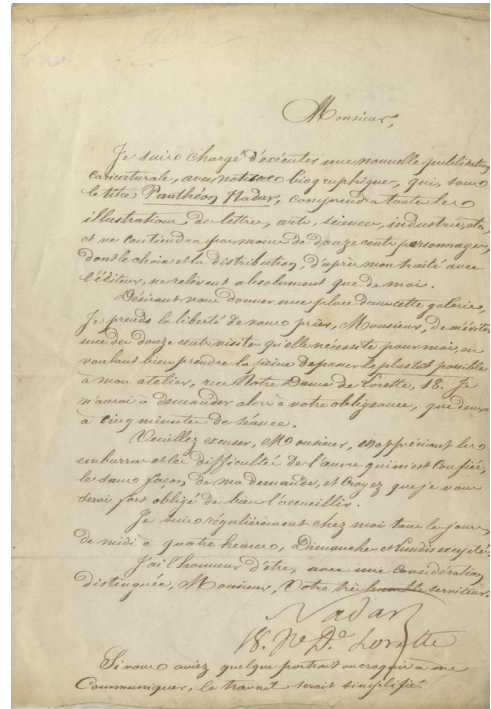 Monsieur,
Je suis chargé d'exécuter une nouvelle publication
caricaturale, avec notice biographique, qui, sous
le titre Panthéon Nadar, comprendra toutes les
illustrations des lettres, arts, sciences, industries, etc,
et ne contiendra pas moins de douze cents personnages,
dont le choix et la distribution, d'après mon traité avec
l'éditeur, ne relèvent absolument que de moi.
Désirant vous donner une place dans cette galerie,
Je prends la liberté de vous prier, Monsieur, de m'éviter
une des douze cents visites qu'elle nécessite pour moi, en
voulant bien prendre la peine de passer le plus tôt possible
à mon atelier, rue Notre Dame de Lorette, 18. Je
n'aurai à demander alors à votre obligeance, que deux
à cinq minutes de séance.
Veuillez excuser, Monsieur, en appréciant les
embarras et les difficultés de l'œuvre qui m'est confiée,
le sans façon de ma demande, et croyez que je vous
serai fort obligé de bien l'accueillir.
Je suis régulièrement chez moi tous les jours,
de midi à quatre heures, Dimanches et Lundis exceptés.
J'ai l'honneur d'être, avec une considération
distinguée, Monsieur, Votre très humble serviteur.
Nadar
18. Ne De Lorette
Si vous aviez quelque portrait ou croquis à me
Communiquer, le travail serait simplifié.